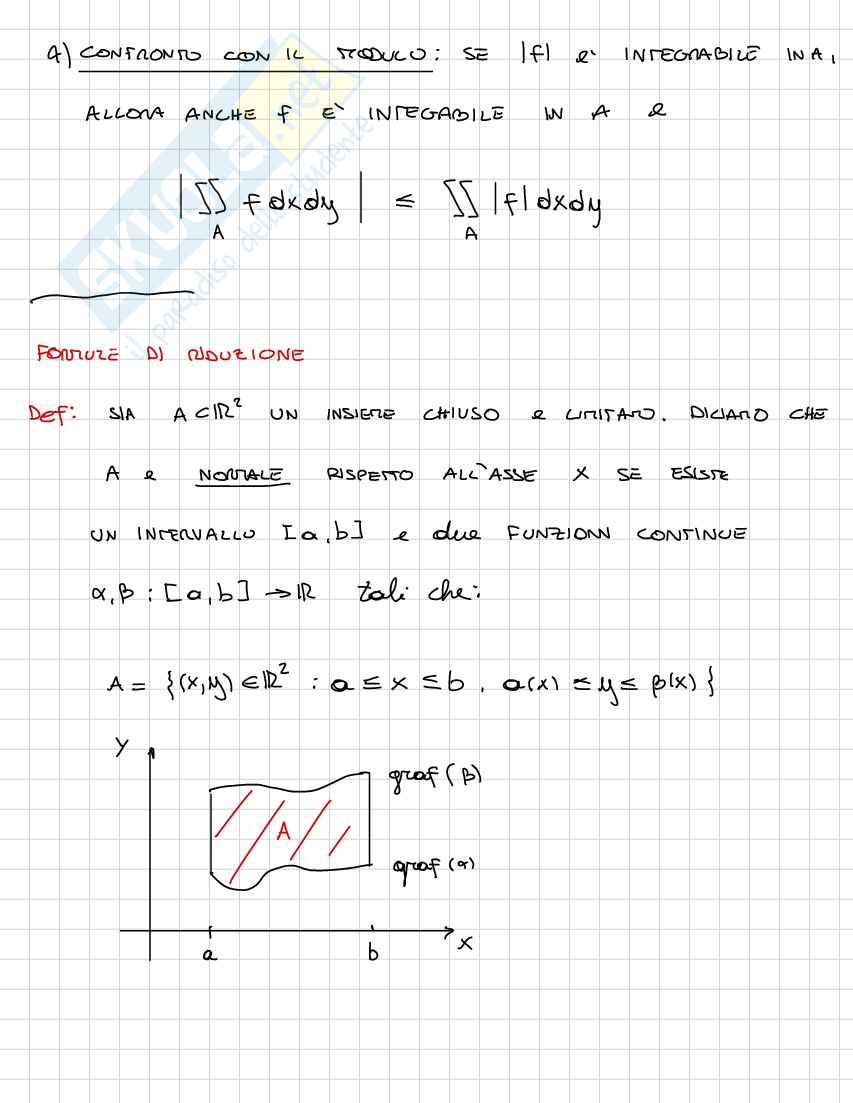 4) CONFRONTO CON IL MODULO: SE |f| è INTEGRABILE IN A,
ALLORA ANCHE f E' INTEGABILE IN A e
|∬_A f dxdy| ≤ ∬_A |f| dxdy
FORMULE DI RIDUZIONE
Def: SIA A⊂ℝ² UN INSIEME CHIUSO e LIMITATO. DICIAMO CHE
A e NORMALE RISPETTO ALL'ASSE X SE ESISTE
UN INTERVALLO [a,b] e due FUNZIONI CONTINUE
α,β : [a,b] → ℝ tali che:
A = {(x,y) ∈ ℝ² : a ≤ x ≤ b, α(x) ≤ y ≤ β(x)}
y
graf (β)
A
graf (α)
a b x
SKUOLA.net
il paradiso dello studente